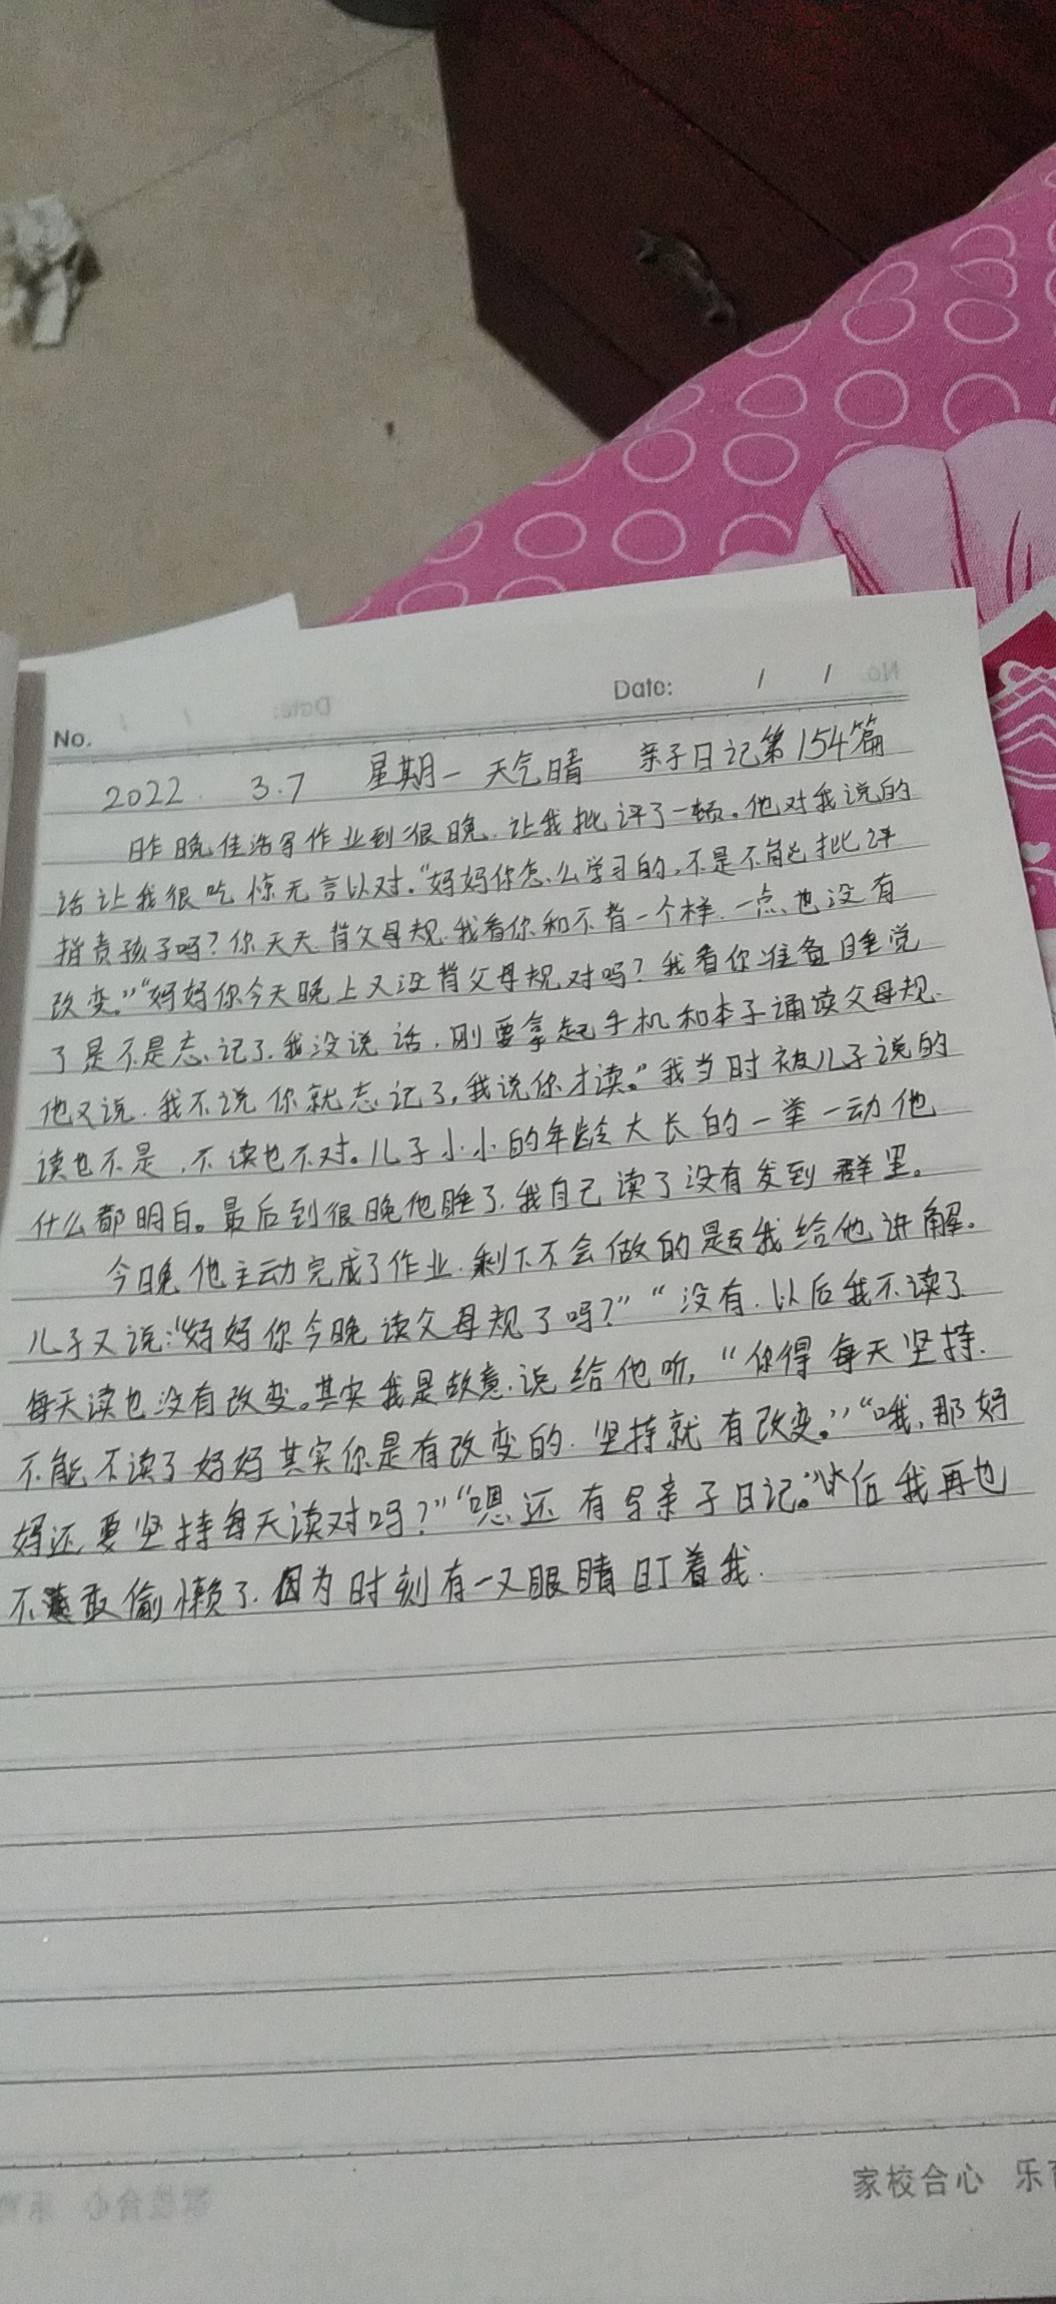 No.
Date: / /
2022. 3.7 星期一 天气晴 亲子日记第154篇
昨晚佳浩写作业到很晚.让我批评了一顿。他对我说的
话让我很吃惊无言以对。“妈妈你怎么学习的,不是不能批评
指责孩子吗?你天天背父母规.我看你和不背一个样.一点也没有
改变。”“妈妈你今天晚上又没背父母规对吗?我看你准备睡觉
了是不是忘记了.我没说话.刚要拿起手机和本子诵读父母规.
他又说.我不说你就忘记了,我说你才读。”我当时被儿子说的
读也不是,不读也不对。儿子小小的年龄大长的一举一动他
什么都明白。最后到很晚他睡了.我自己读了没有发到群里。
今晚他主动完成了作业.剩下不会做的题我给他讲解.
儿子又说:“妈妈你今晚读父母规了吗?”“没有.以后我不读了
每天读也没有改变。其实我是故意.说给他听,“你得每天坚持.
不能不读了妈妈其实你是有改变的.坚持就有改变。”“哦,那妈
妈还要坚持每天读对吗?”“嗯还有写亲子日记。”以后我再也
不敢偷懒了.因为时刻有一双眼睛盯着我.
家校合心 乐